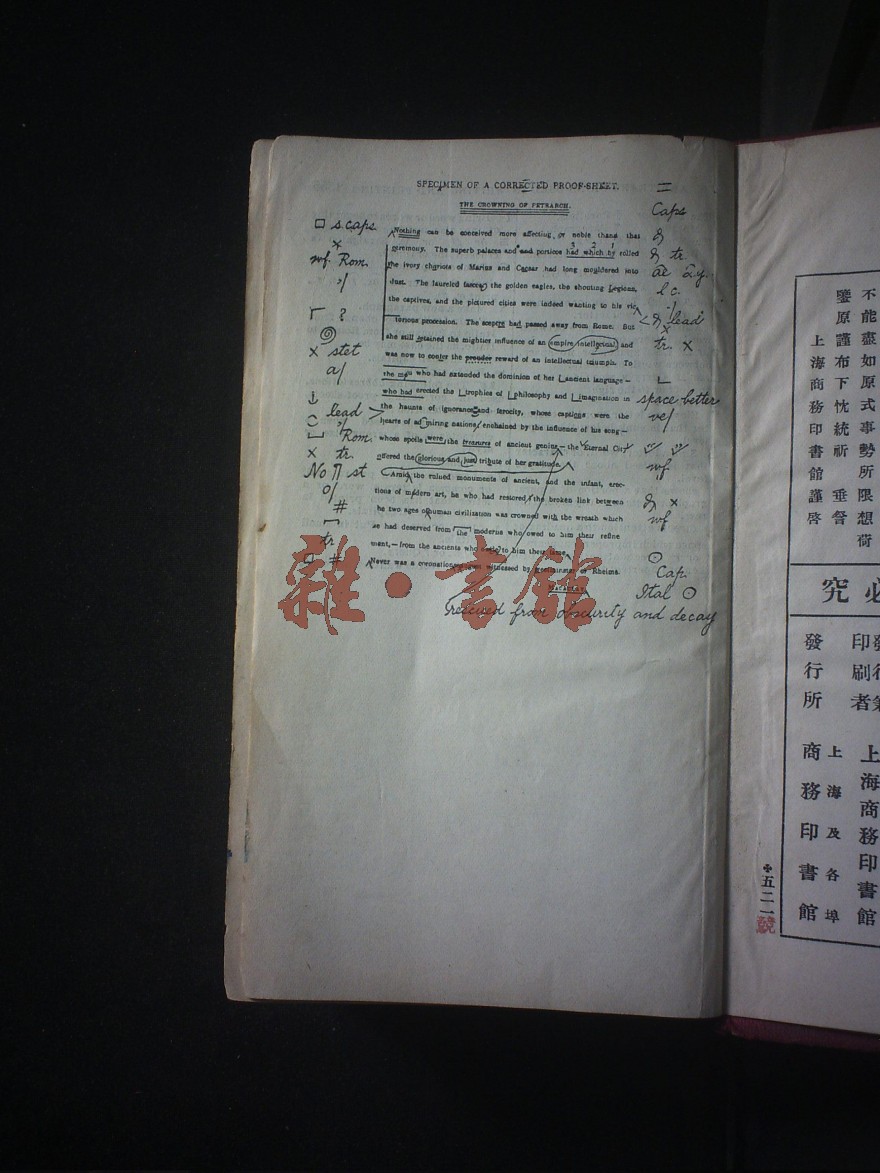 SPECIMEN OF A CORRECTED PROOF-SHEET.
THE CROWNING OF PETRARCH.
Nothing can be conceived more affecting, or noble thans that
ceremony. The superb palaces and and portices had which by rolled
the ivory chariots of Marius and Caesar had long mouldered into
dust. The laureled the golden eagles, the shouting Legions,
the captives, and the pictured cities were indeed wanting to his vic
torious procession. The sceptre had passed away from Rome. But
she still retained the mightier influence of an empire intellectual and
was now to confer the prouder reward of an intellectual triumph. To
the who had extended the dominion of her ancient language—
who had erected the trophies of philosophy and imagination in
the haunts of ignorance and ferocity, whose captions were the
hearts of admiring nations enchained by the influence of his song—
whose spoils were the treasures of ancient genius — the Eternal City
offered the glorious and just tribute of her gratitude.
Amid the ruined monuments of ancient, and the infant, erec-
tions of modern art, he who had restored the broken link between
he two ages human civilization was crowned with the wreath which
he had deserved from the moderns who owed to him their refine
ment,— from the ancients who to him their fame.
Never was a coronation witnessed by or Rheims.
s.caps.
×
wf. Rom.
?
× stet
a/
lead
Rom.
× tr.
No ¶ st
o/
#
tr
#
=
Caps
tr.
l c.
lead
tr. ×
space better
ve/
wf
×
wf
Cap.
Ital
rescued from obscurity and decay
雜·書館
不能盡如原式事勢所限想荷
鑒原謹布下忱統祈垂詧
上海商務印書館謹啓
必究
發行所
商務印書館
上海及各埠
上海商務印書館
五二一